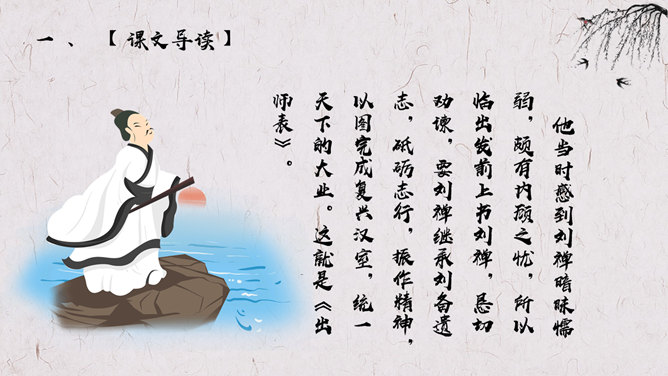 一、【课文导读】
他当时感到刘禅暗昧懦
弱，颇有内顾之忧，所以
临出发前上书刘禅，恳切
劝谏，要刘禅继承刘备遗
志，砥砺志行，振作精神，
以图完成复兴汉室，统一
天下的大业。这就是《出
师表》。